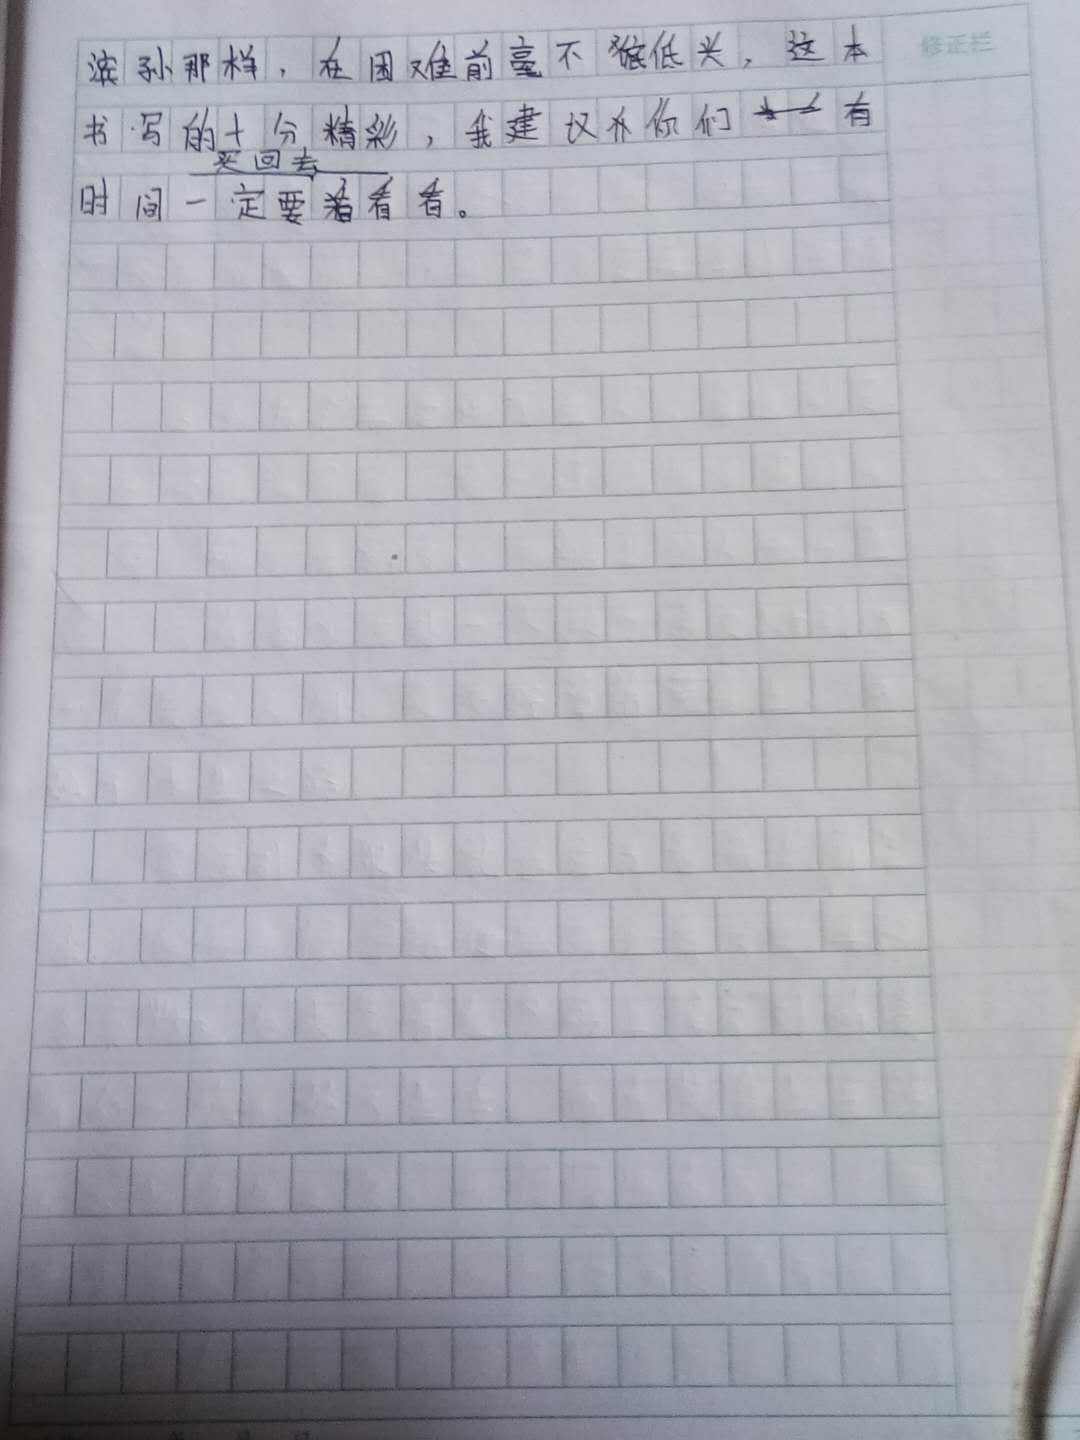 滨孙那样，在困难前毫不猴低头，这本
修正栏
书写的十分精彩，我建议你们有
买回去
时间一定要看看看。